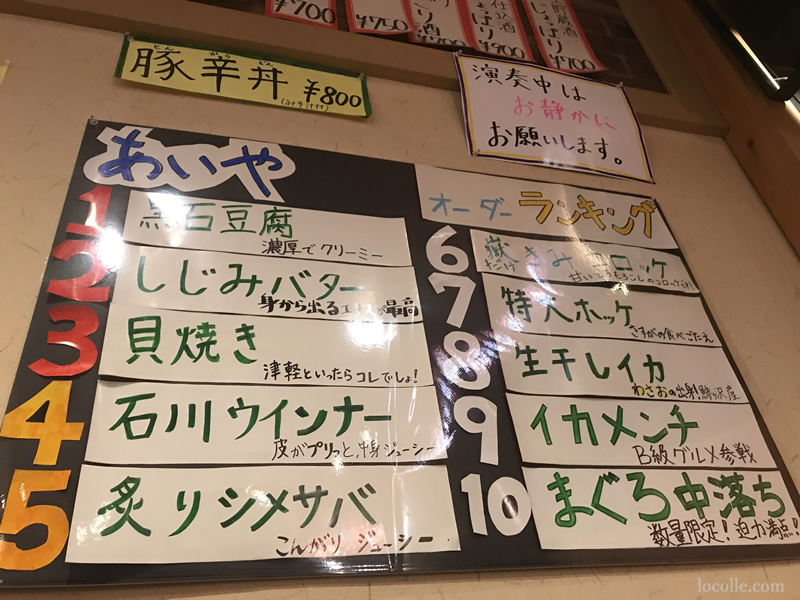 ¥700
¥750
¥700
仕込酒
しょっぱり
¥900
貯蔵酒
じょっぱり
¥700
豚辛丼 ¥800
とん から どん
演奏中は
お静かに
お願いします。
あいや
オーダーランキング
1 黒石豆腐
濃厚でクリーミー
2 しじみバター
身から出るエキスが最高
3 貝焼き
津軽といったらコレでしょ!
4 石川ウインナー
皮がプリっと、中身ジューシー
5 炙りシメサバ
こんがり ジューシー
6 嶽きみコロッケ
だけ
甘いとうもろこしのコロッケです
7 特大ホッケ
さすがの食べごたえ
8 生干しイカ
わさおの出身!鰺ヶ沢産
9 イカメンチ
B級グルメ参戦
10 まぐろ中落ち
数量限定!迫力満点!
locolle.com